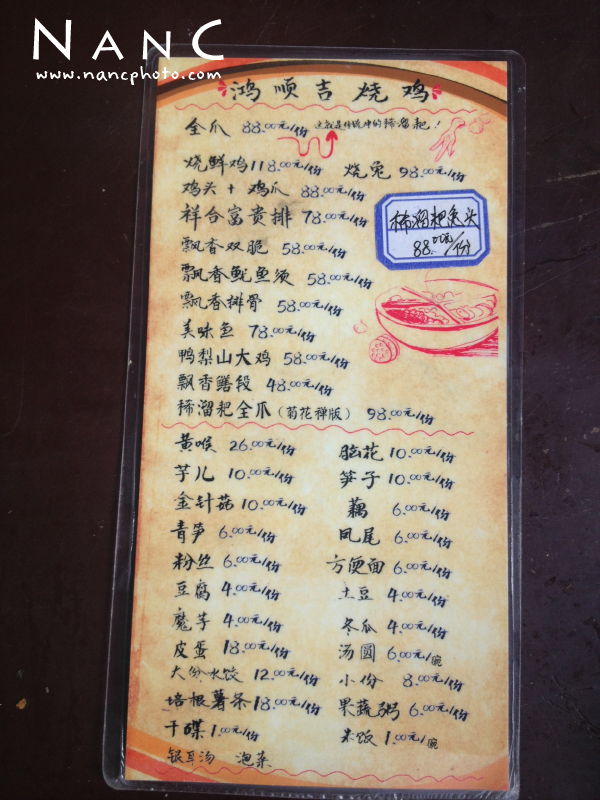 NANC
www.nancphoto.com
鸿顺吉烧鸡
全爪 88.00元/份 这就是传说中的稀溜耙!
烧鲜鸡 118.00元/份 烧兔 98.00元/份
鸡头+鸡爪 88.00元/份
祥合富贵排 78.00元/份
稀溜耙条火
88.00元/份
飘香双脆 58.00元/份
飘香鱿鱼须 58.00元/份
飘香排骨 58.00元/份
美味鱼 78.00元/份
鸭梨山大鸡 58.00元/份
飘香鳝段 48.00元/份
稀溜耙全爪(菊花禅版) 98.00元/份
黄喉 26.00元/份 脑花 10.00元/份
芋儿 10.00元/份 笋子 10.00元/份
金针菇 10.00元/份 藕 6.00元/份
青笋 6.00元/份 凤尾 6.00元/份
粉丝 6.00元/份 方便面 6.00元/份
豆腐 4.00元/份 土豆 4.00元/份
魔芋 4.00元/份 冬瓜 4.00元/份
皮蛋 18.00元/份 汤圆 6.00元/碗
大份水饺 12.00元/份 小份 8.00元/份
培根薯条 18.00元/份 果蔬粥 6.00元/份
干碟 1.00元/份 米饭 1.00元/碗
银耳汤 泡菜